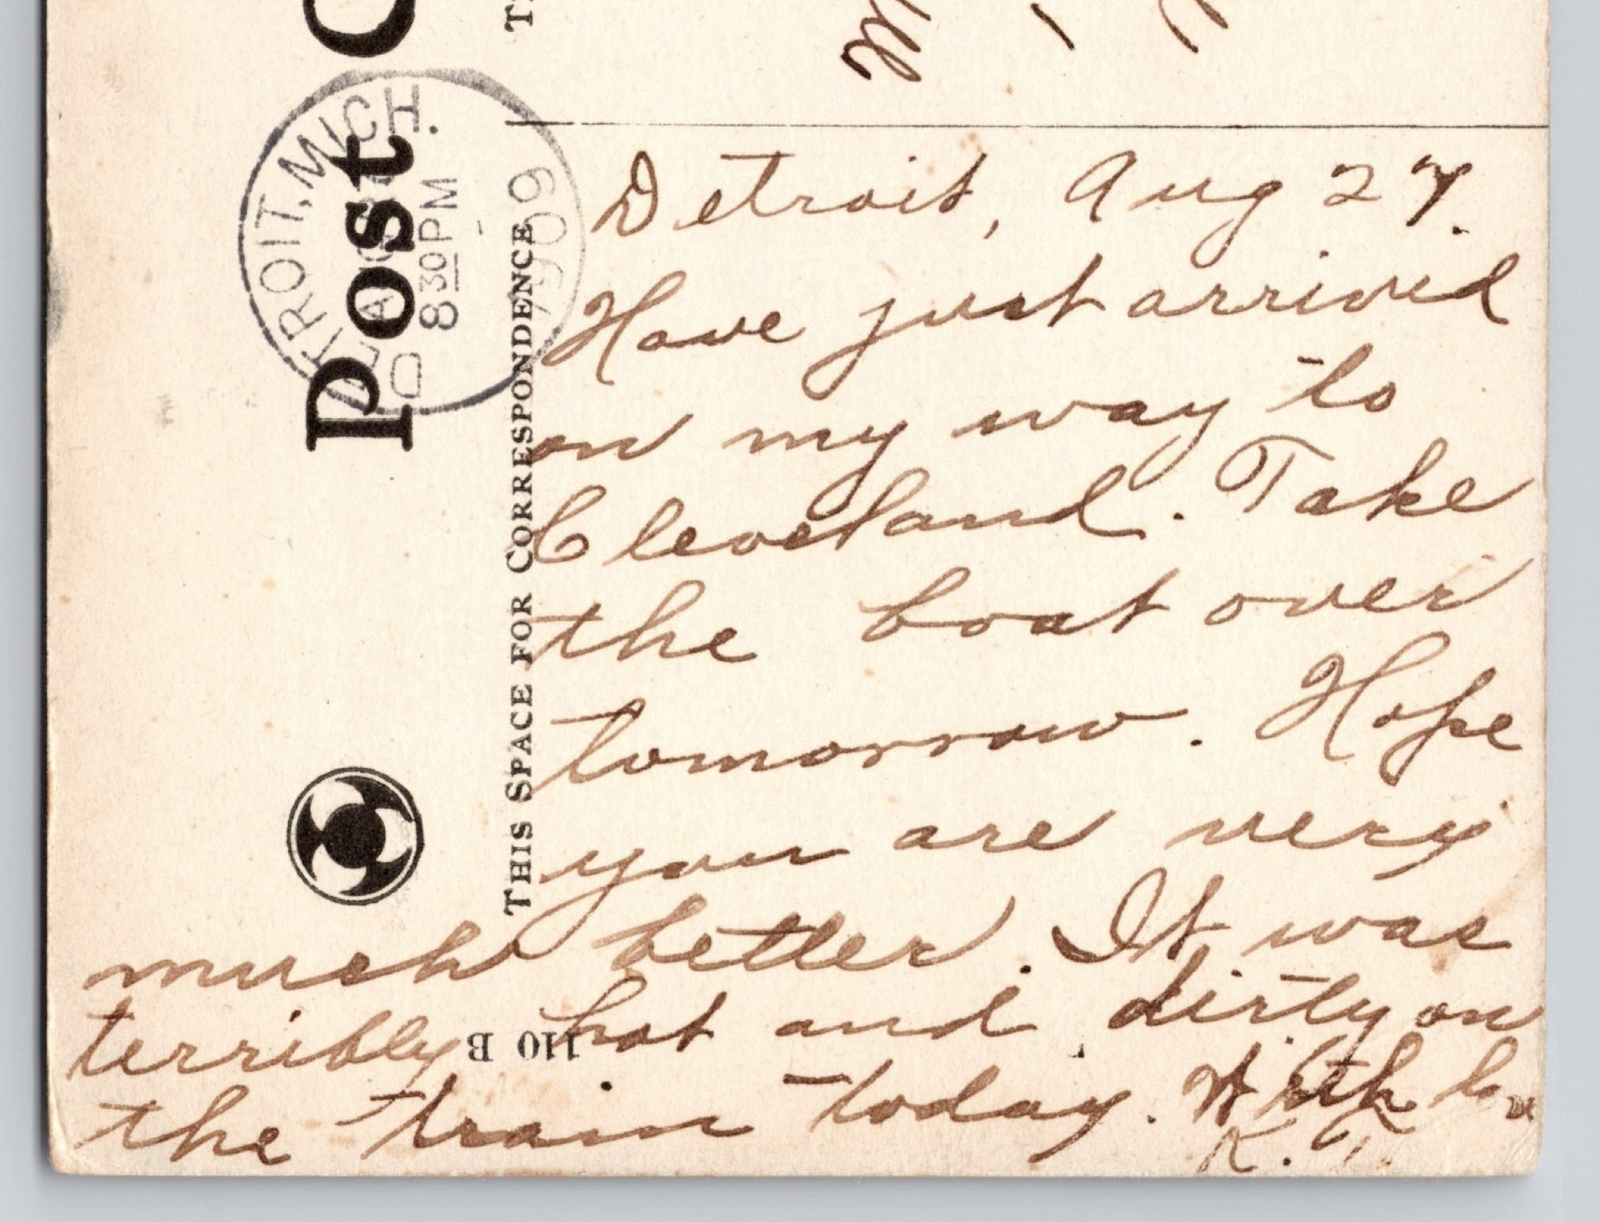 Post
DETROIT, MICH.
830PM
1909
THIS SPACE FOR CORRESPONDENCE
Detroit, Aug 27.
Have just arrived
on my way to
Cleveland. Take
the boat over
tomorrow. Hope
you are very
much better. It was
terribly hot and dirty on
the train today. With
K.
110 B